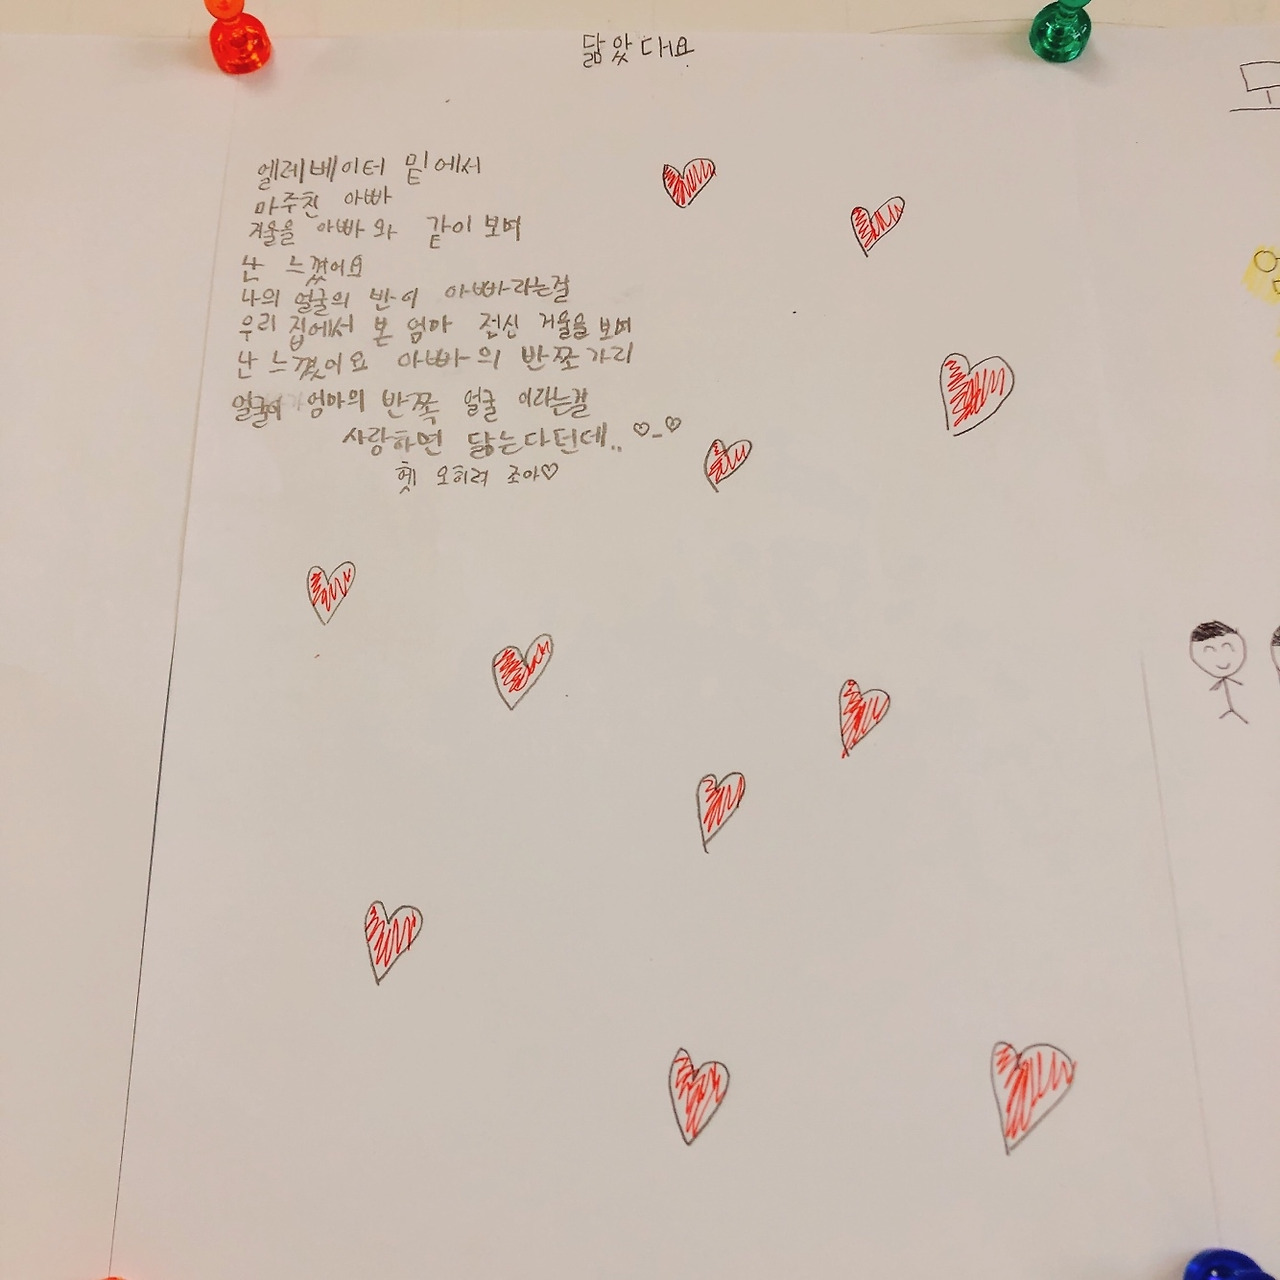 닮았대요
엘레베이터 밑에서
마주친 아빠
거울을 아빠와 같이 보며
난 느꼈어요
나의 얼굴의 반이 아빠라는걸
우리 집에서 본 엄마 전신 거울을 보며
난 느꼈어요 아빠의 반쪽가리
얼굴이 엄마의 반쪽 얼굴 이라는걸
사랑하면 닮는다던데.. ♡-♡
헷 오히려 조아♡